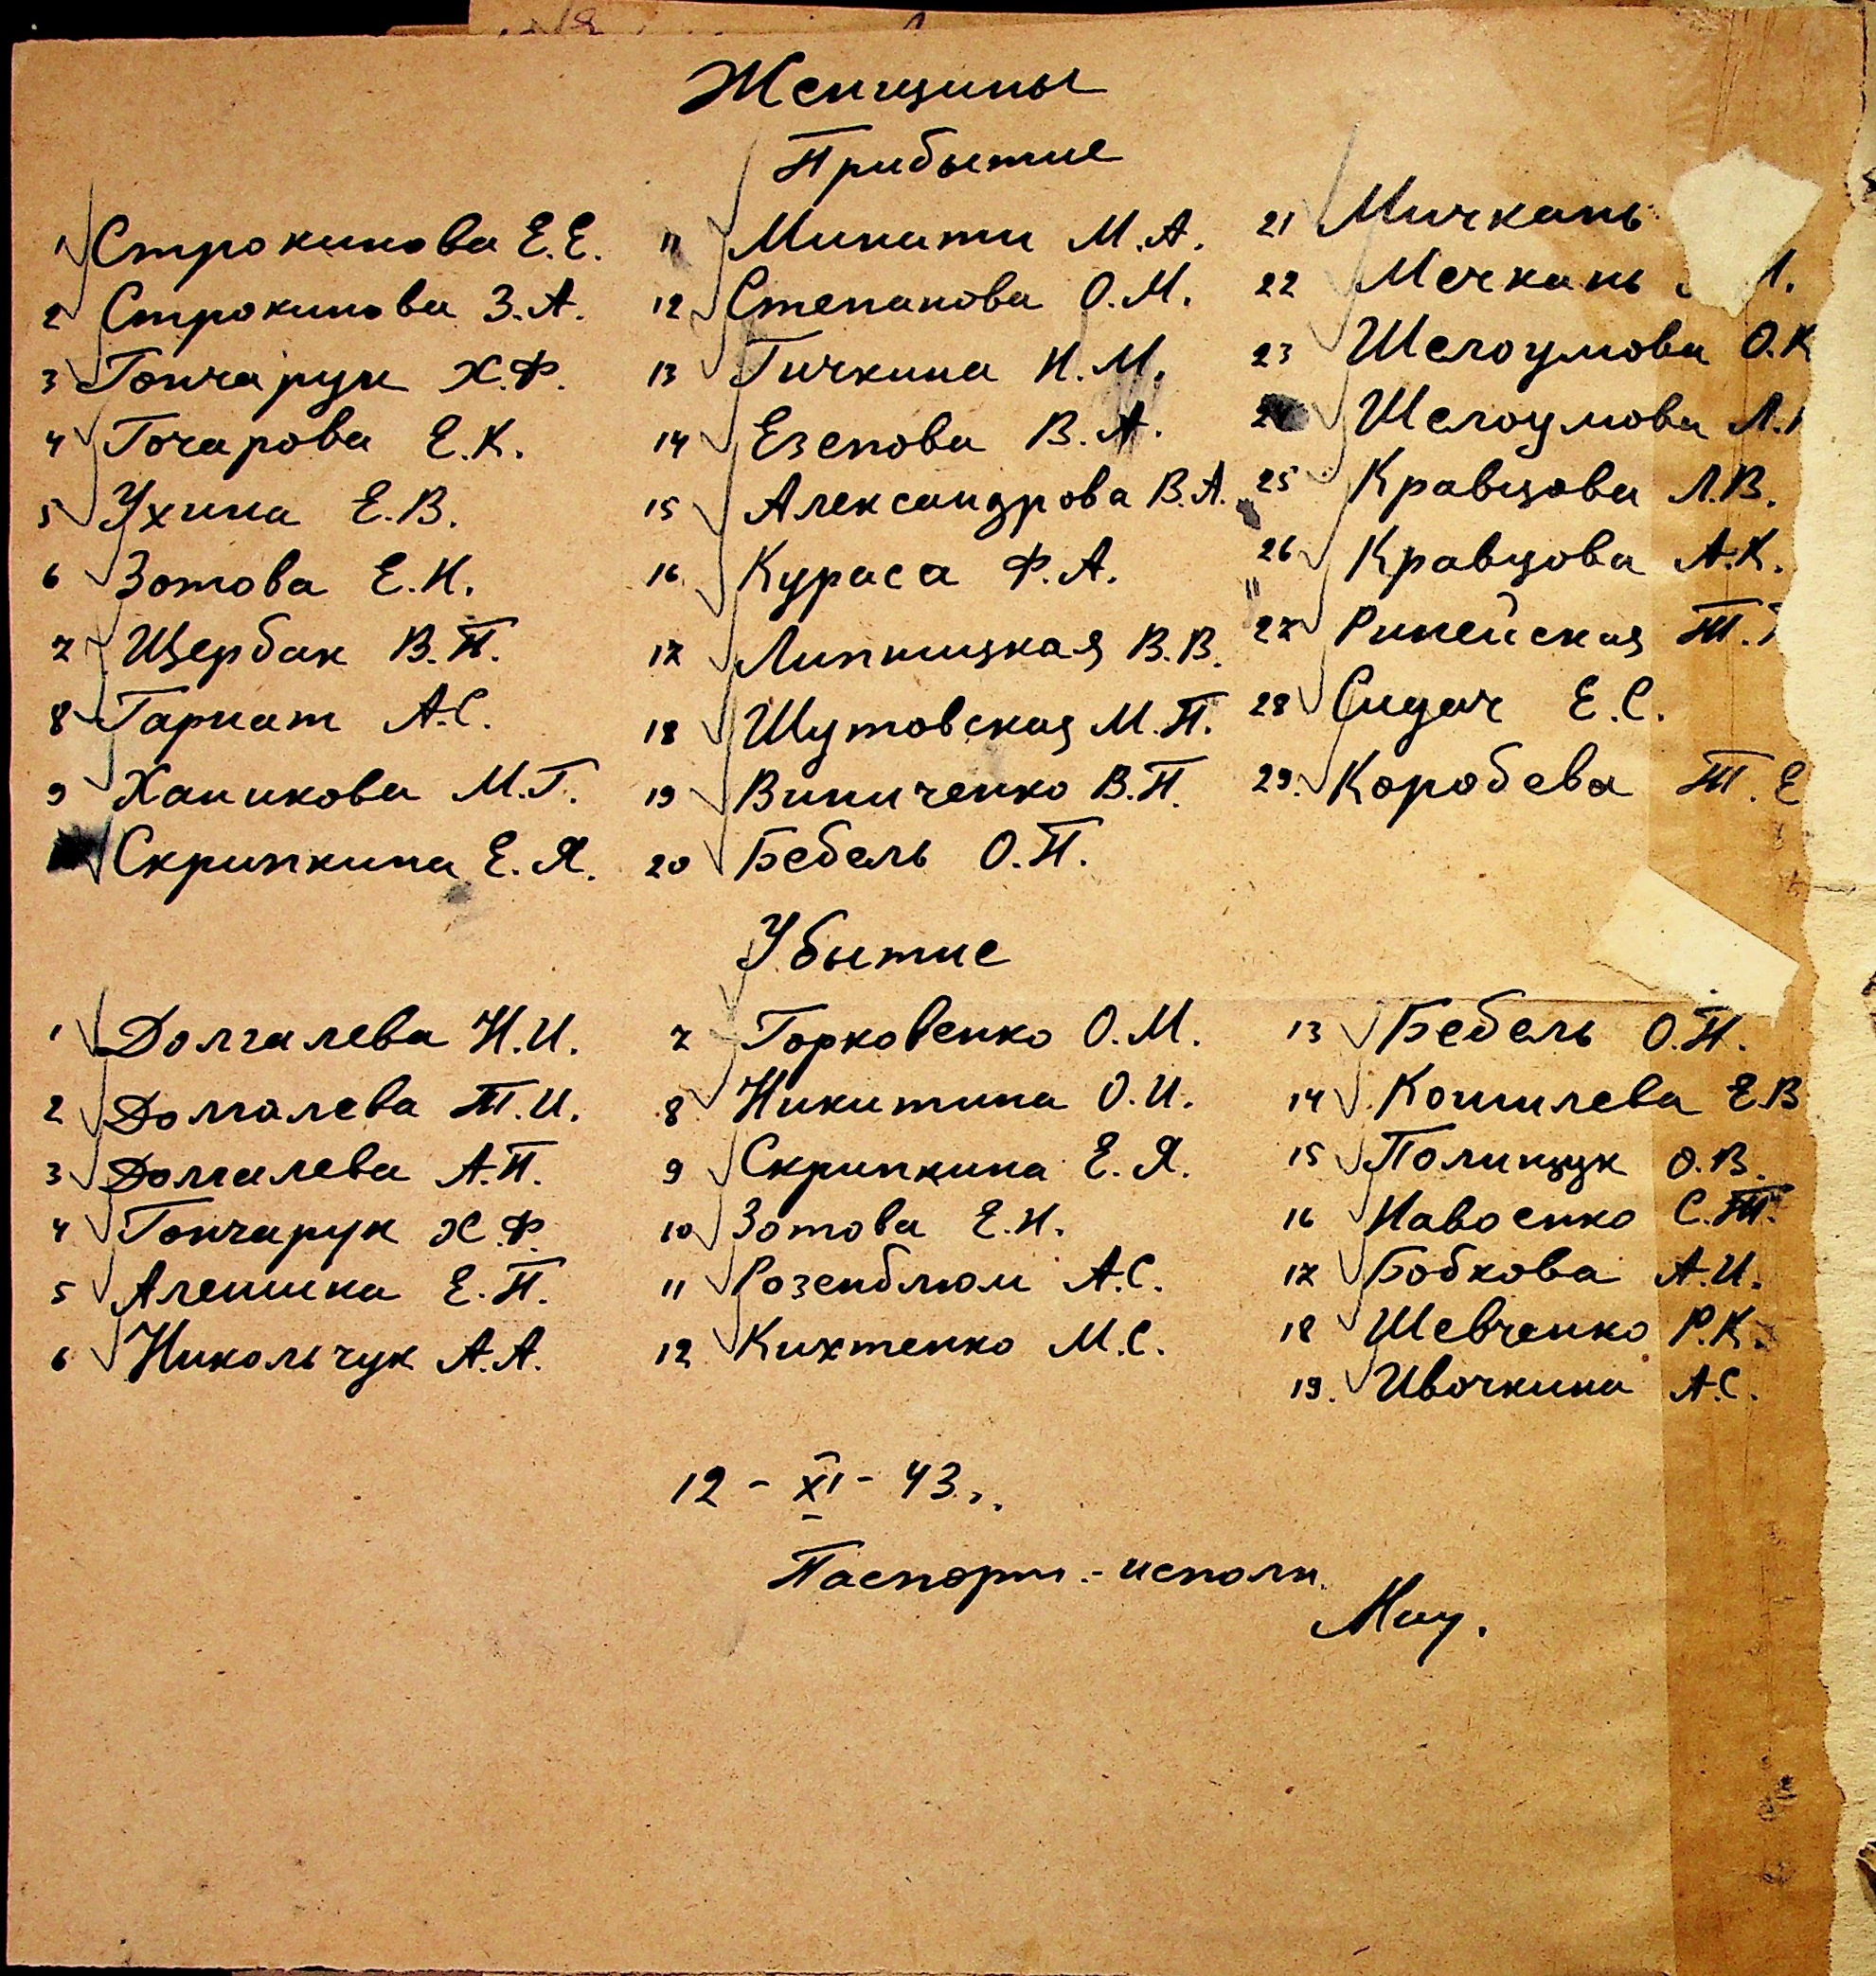 Женщины
Прибытие
1 Строкинова Е.Е.
2 Строкинова З.А.
3 Гончарук Х.Ф.
4 Гочарова Е.К.
5 Ухина Е.В.
6 Зотова Е.Н.
7 Щербак В.П.
8 Гарнат А.С.
9 Ханикова М.Г.
Скрипкина Е.Я.
11 Минати М.А.
12 Степанова О.М.
13 Гичкина Н.М.
14 Езепова В.А.
15 Александрова В.А.
16 Кураса Ф.А.
17 Липницкая В.В.
18 Шутовская М.П.
19 Виниченко В.П.
20 Бебель О.П.
21 Мичкань
22 Мечкань
23 Шелоумова О.К
24 Шелоумова Л.
25 Кравцова Л.В.
26 Кравцова А.К.
27 Ринейская Т.
28 Сидач Е.С.
29. Коробева Т.Е
Убытие
1 Долгалева Н.И.
2 Долгалева Т.И.
3 Долгалева А.П.
4 Гончарук Х.Ф.
5 Алешина Е.П.
6 Никольчук А.А.
7 Горковенко О.М.
8 Никитина О.И.
9 Скрипкина Е.Я.
10 Зотова Е.Н.
11 Розенблюм А.С.
12 Кихтенко М.С.
13 Бебель О.П.
14 Кошилева Е.В
15 Полищук О.В.
16 Навоенко С.Т.
17 Бобкова А.И.
18 Шевченко Р.К.
19. Ивочкина А.С.
12 - XI - 43г.
Паспорт.- исполн.